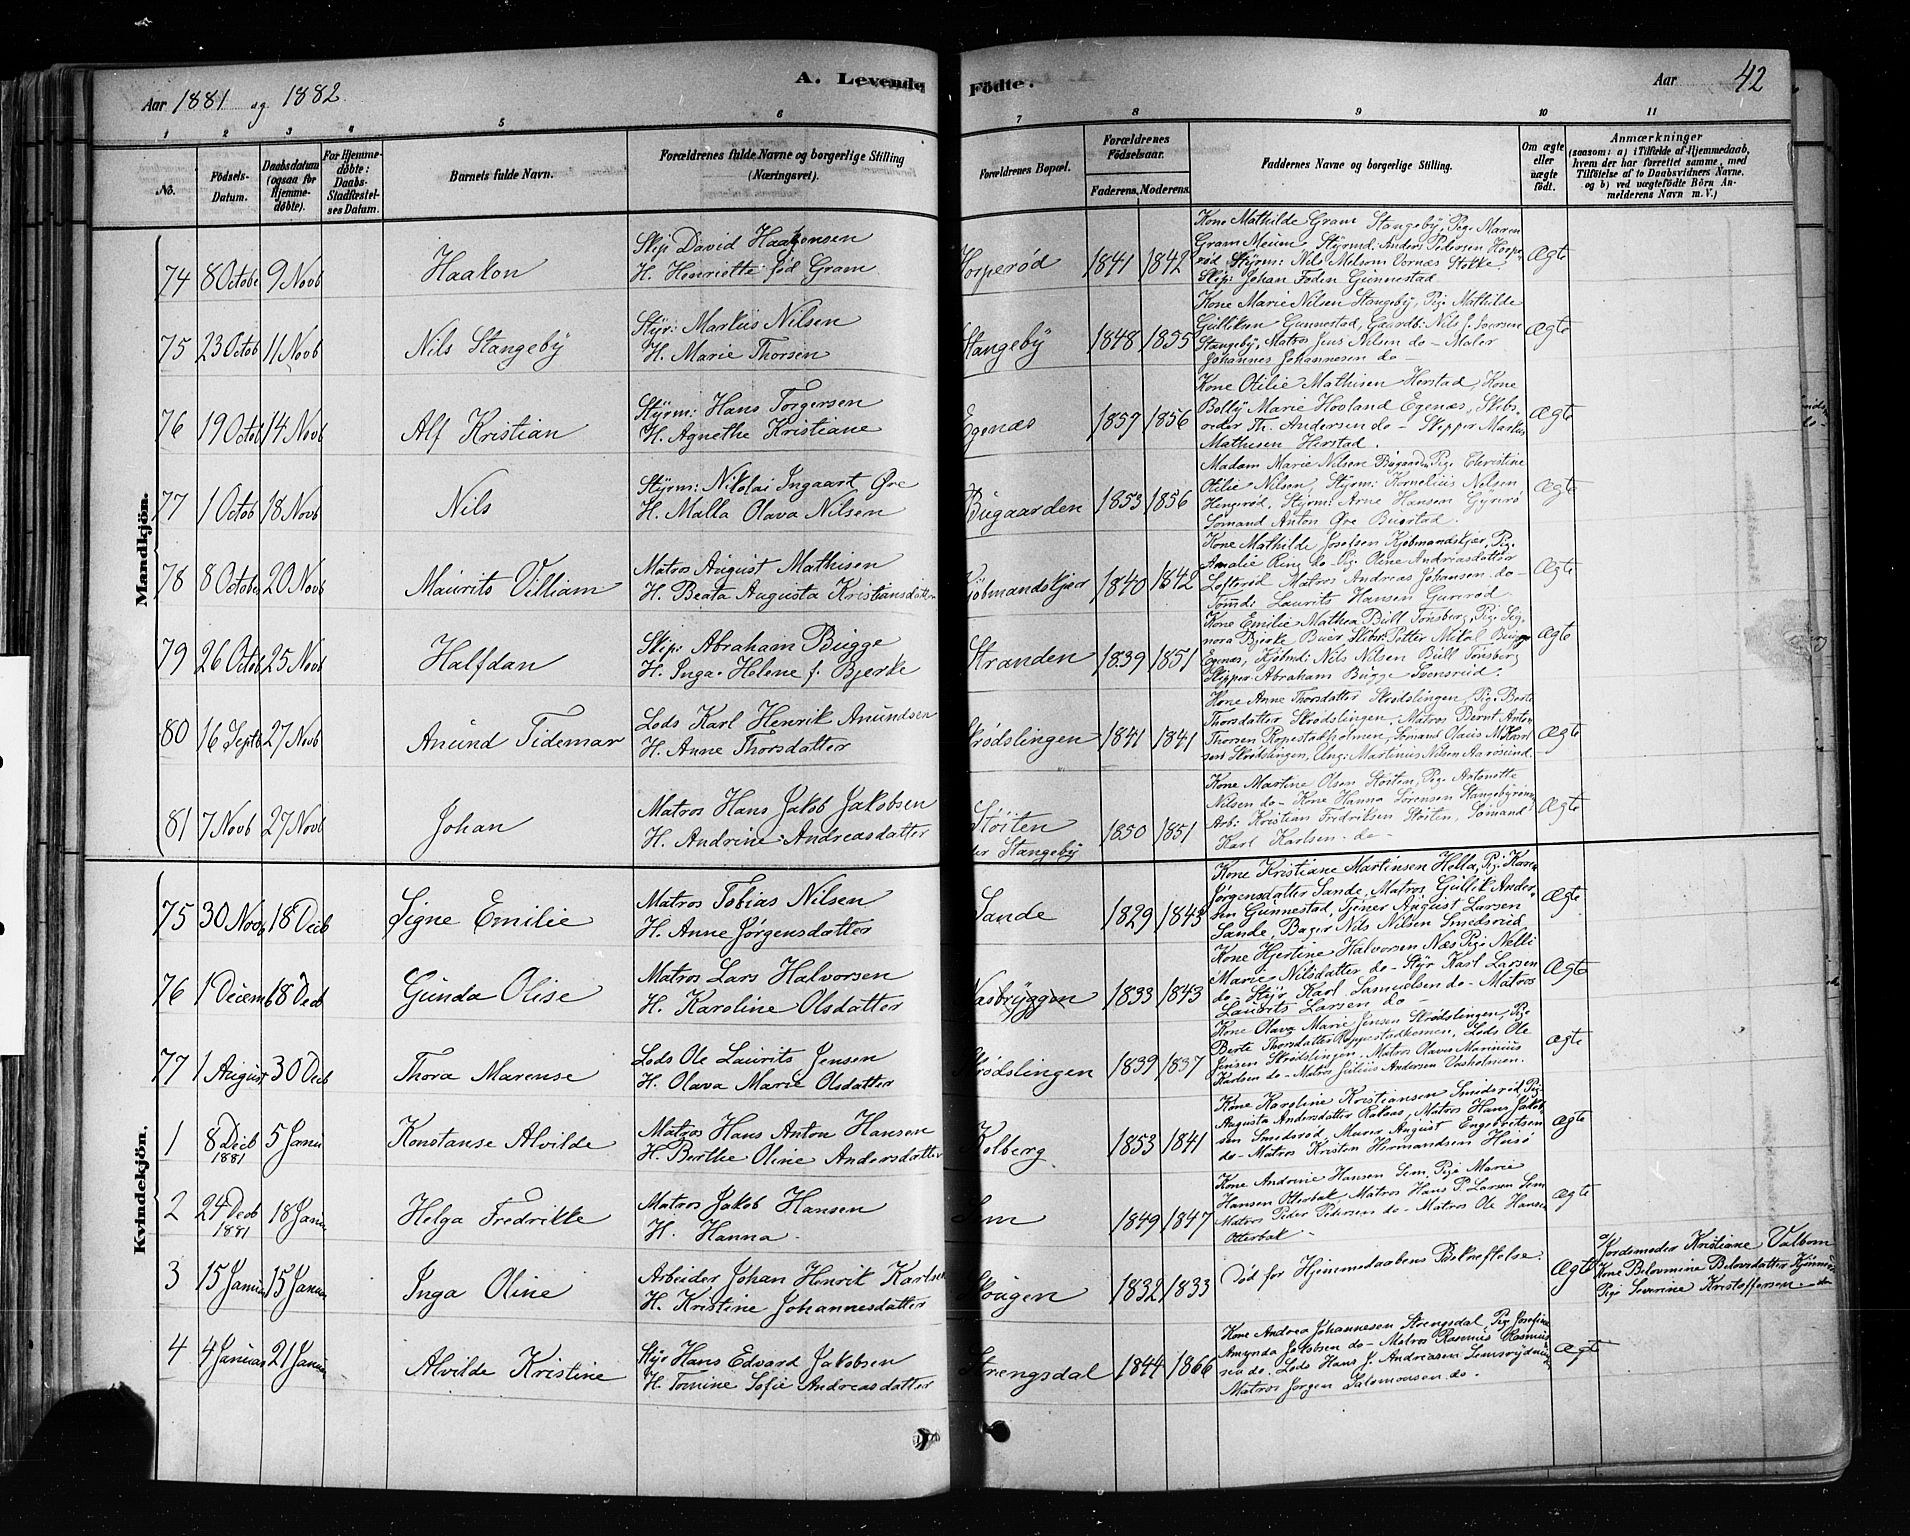 Aar 1881 og 1882.
A. Levende Födte.
Aar 42
1 2 3 4 5 6 7 8 9 10 11
No.
Födsels-Datum.
Daabsdatum (ogsaa for Hjemme-döbte).
For Hjemme-döbte: Daabs-Stadfæstel-ses Datum.
Barnets fulde Navn.
Forældrenes fulde Navne og borgerlige Stilling (Næringsvei).
Forældrenes Bopæl.
Forældrenes Födselsaar.
Faderens. Moderens.
Faddernes Navne og borgerlige Stilling.
Om ægte eller uægte födt.
Anmærkninger
(saasom: a) i Tilfælde af Hjemmedaab, hvem der har forrettet samme, med Tilföielse af to Daabsvidners Navne, og b) ved uægtefödte Börn An-melderens Navn m. V.)
Mandkjön.
74 8 Octobe 9 Novb Haakon
Skip: David Haakonsen
H. Henriette fød Gram
Horperød 1841 1842
Kone Mathilde Gram Stangeby, Pige Maren
Gram Meum, Styrmd: Anders Pedersen Horpe-
rød Styrm: Nils Melsom Vernæs Stokke.
Skip: Johan Foden Gunnestad
Ægte
75 23 Octob 11 Novb Nils Stangeby
Styr: Markus Nilsen
H. Marie Thorsen
Stangeby 1848 1855
Kone Marie Nilsen Stangeby, Pige Mathilde
Gulliksen Gunnestad, Gaardb: Nils J. Iversen
Stangeby, Matros Jens Nilsen do - Maler
Johannes Johannesen do -
Ægte
76 19 Octob 14 Novb Alf Kristian
Styrm: Hans Torgersen
H. Agnethe Kristiane
Egenæs 1857 1856
Kone Otilie Mathisen Herstad, Kone
Bolly Marie Hovland Egenæs, Skibs-
reder Th. Andersen do - Skipper Markus
Mathisen Herstad.
Ægte
77 1 Octob 18 Novb Nils
Styrm: Nikolai Ingaart Øre
H. Malla Olava Nilsen
Bugaarden 1853 1856
Madam Marie Nilsen Bugaarden, Pige Christine
Otilie Nilsen, Styrm: Kornelius Nelsen
Hengerød, Styrm: Arne Hansen
Sømand Anton Øre Buerstad.
Ægte
78 8 October 20 Novb Maurits Villiam
Matros August Mathisen
H. Beata Augusta Kristiansdatter
Kjøbmandskjær 1840 1842
Kone Mathilde Josefsen Kjøbmandskjær, Pige
Amalie Ring do Pig: Oline Andriasdatter
Lofterød Matros Andreas Johansen do -
Tømdr Laurits Hansen
Ægte
79 26 Octob 25 Novb Halfdan
Skip: Abraham Bugge
H. Inga Helene f. Bjerke
Stranden 1839 1851
Kone Emilie Mathea Bull Tønsberg, Pige Sig-
nora Bjerke Buer Skibr: Petter Bugge
Egenæs, Kjøbmd: Nils Nilsen Bull Tønsberg
Skipper Abraham Bugge Svensrud.
Ægte
80 16 Septb 27 Novb Anund Tidemar
Lods Karl Henrik Anundsen
H. Anne Thorsdatter
Skrødslingen 1841 1841
Kone Anne Thorsdatter Skrødslingen, Pige Berte
Thorsdatter Skrødslingen, Matros Bernt Anton
Thorsen Ropestadholmen, Sømand Olaus M Karl
sen Skrødslingen, Ung: Martinius Nilsen Aarøsund.
Ægte
81 7 Novb 27 Novb Johan
Matros Hans Jakob Jakobsen
H. Andrine Andreasdatter
Støiten
der Stangeby 1850 1851
Kone Martine Olsen Støiten, Pige Antonette
Nilsen do - Kone Hanna Sørensen
Arb: Kristian Fredriksen Støiten, Sømand
Karl Karlsen do -
Ægte
Kvindekjön.
75 30 Novb 18 Decb Signe Emilie
Matros Tobias Nilsen
H. Anne Jørgensdatter
Sande 1829 1843
Kone Kristiane Martinsen Hella, Pige Karen
Jørgensdatter Sande, Matros Gullik Ander-
sen Gunnestad, Tjener August Larsen
Sande, Bager Nils Nilsen Smedsrud
Ægte
76 1 Decemb 18 Decb Gunda Olise
Matros Lars Halvorsen
H. Karoline Olsdatter
Næsbryggen 1833 1843
Kone Hjertine Halvorsen Næs Pige Nelli
Marie Nilsdatter do - Styr Karl Larsen
do - Styr Karl Samuelsen do - Matros
Laurits Larsen do -
Ægte
77 1 August 30 Decb Thora Marense
Lods Ole Laurits Jensen
H. Olava Marie Olsdatter
Skrødslingen 1839 1837
Kone Olava Marie Jensen Skrødslingen, Pige
Berte Thorsdatter Roppestadholmen, Lods Ole
Jensen Skrødslingen, Matros Olaves Marinius
Karlsen do - Matros Julius Andersen Vasholmen.
Ægte
1 8 Decb 1881 5 Janu Konstanse Alvilde
Matros Hans Anton Hansen
H. Berthe Oline Andersdatter
Kolberg 1853 1841
Kone Karoline Kristiansen Smidsrød, Pige
Augusta Andersdatter Rakaas, Matros Hans Jakob-
sen Smedsrød, Murer August Engebretsen
do - Matros Kristen Hermandsen Husø
Ægte
2 24 Decb 1881 18 Janu Helga Fredrikke
Matros Jakob Hansen
H. Hanna -
Sem 1849 1847
Kone Andrine Hansen Sem, Pige Marie
Hansen Otterbæk, Matros Hans P. Larsen Sem
Matros Peder Pedersen do - Matros Ole Hansen
Otterbæk -
Ægte
3 15 Janua 15 Janua Inga Oline
Arbeider Johan Henrik Karlsen
H. Kristine Johannesdatter
Skougen 1832 1833
Død før Hjemmedaabens Bekræftelse.
Ægte
a/ Jordemoder Kristiane Valbom
Kone Belovmine Belovsdatter
Pige Severine Kristoffersen do
4 4 Januar 21 Janua Alvilde Kristine
Styr Hans Edvard Jakobsen
H. Tomine Sofie Andreasdatter
Strengsdal 1844 1866
Kone Andrea Johannesen Strengsdal, Pige Josefine
Amanda Jakobsen do - Matros Rasmus Rasmus
sen do. Lods Hans J. Andreasen
Matros Jørgen Salomonsen do.
Ægte